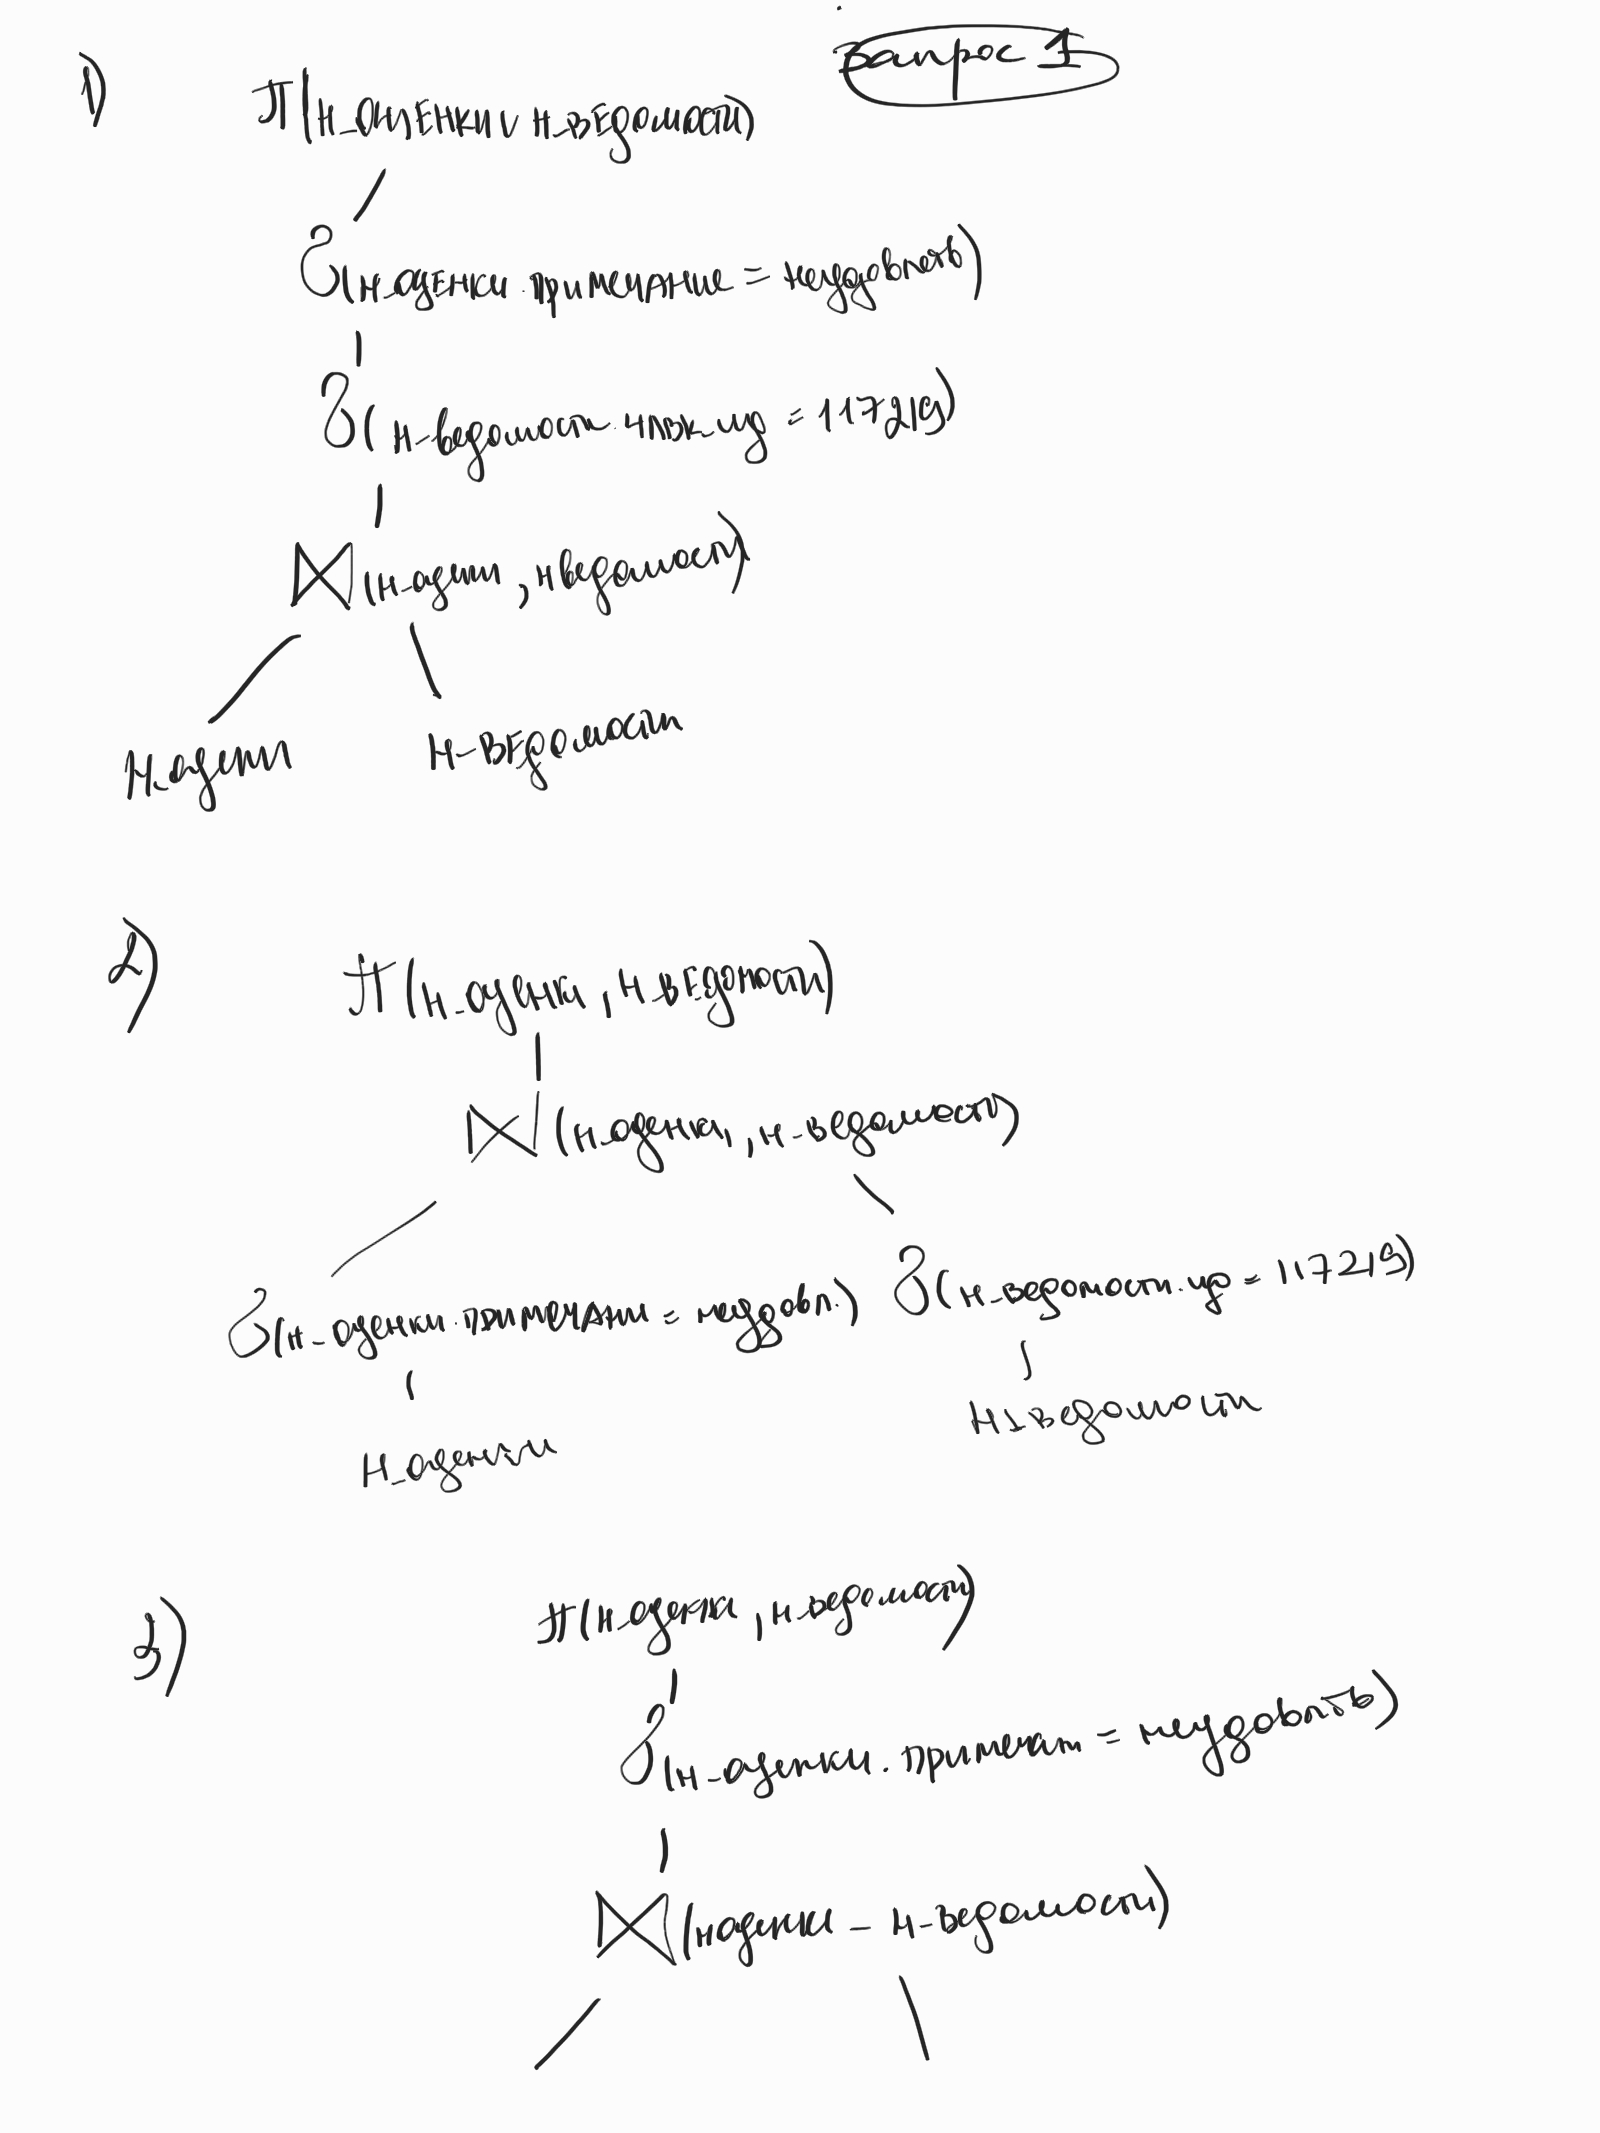 Запрос 1
1)
π(Н_ОЦЕНКИ, Н_ВЕДОМОСТИ)
σ(Н_ОЦЕНКИ.ПРИМЕЧАНИЕ = неудовлеть)
σ(Н_ведомости.ЧЛВК_ИД = 117219)
⋈(Н_оценки, Нведомости)
Н_оценки Н_ВЕДомости
2)
π(Н_оценки, Н_ВЕДОМОСТИ)
⋈(Н_оценки, , Н_ведомости)
σ(Н_оценки.примечани = неудовл.) σ(Н_ведомости.ид = 117219)
Н_оценки Н_ведомости
3)
π(Н_оценки, Н_ведомости)
σ(Н_оценки.примечан = неудовлть)
⋈(Ноценки – Н_ведомости)